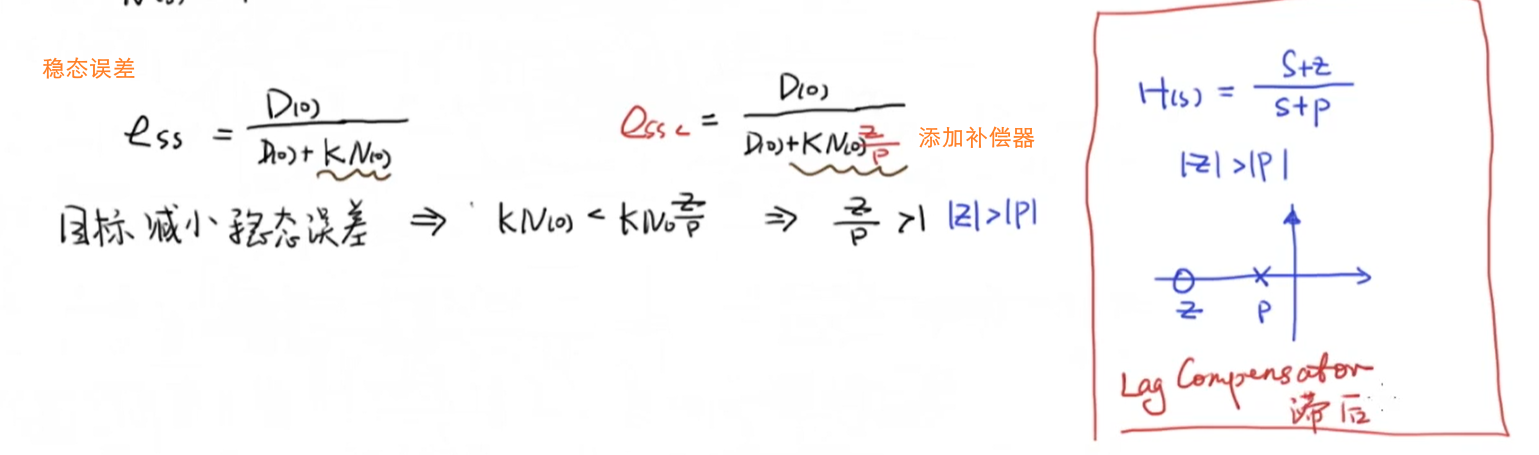 稳态误差
ess = D(0) / (D(0) + KN(0))
essc = D(0) / (D(0) + KN(0) z/p) 添加补偿器
目标 减小 稳态误差 ⇒ KN(0) < KN0 z/p ⇒ z/p > 1 |z| > |p|
H(s) = (s+z) / (s+p)
|z| > |p|
z p
Lag Compensator
滞后